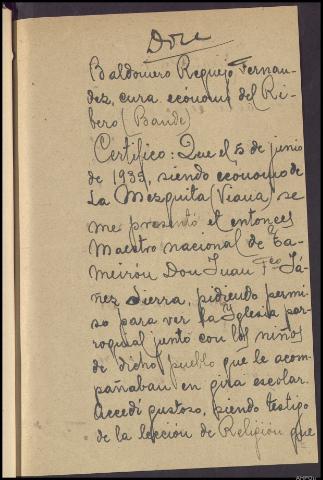 Don
Baldomero Requejo Fernan-
dez, cura ecónomo del Ri-
bero (Bande)
Certifico: Que el 5 de junio
de 1935, siendo economo de
La Mezquita (Viana) se
me presentó el entonces
Maestro nacional de Ta-
meirón Don Juan Fco Yá-
ñez Sierra, pidiendo permi-
so para ver la Iglesia par-
roquial junto con los niños
de dicho pueblo que le acom-
pañaban en gira escolar.
Accedí gustoso, siendo testigo
de la lección de Religión que